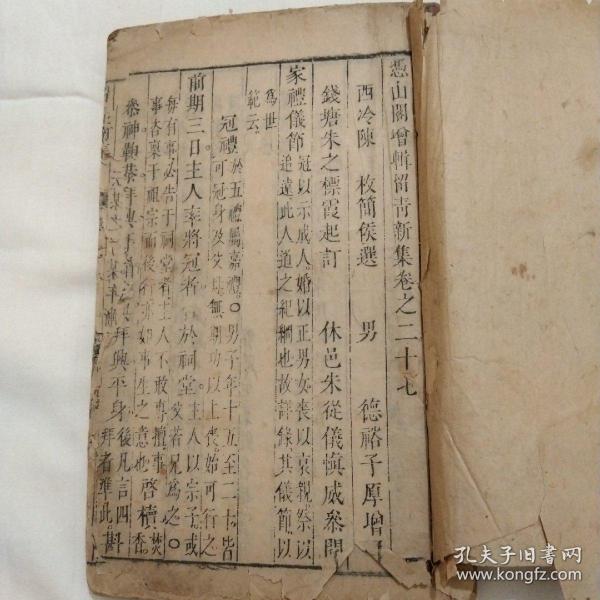 憑山閣增輯留青新集卷之二十七
西泠陳枚簡侯選 男 德裕子厚增
錢塘朱之標霞起訂 休邑朱從儀愼威叅閱
家禮儀節 冠以示成人婚以正男女喪以哀親祭以
追遠此人道之紀綱也故詳錄其儀節以
爲世
範云
冠禮 於五禮屬嘉禮○男子年十五至二十皆
可冠身及父母無期功以上喪始可行之
前期三日主人率將冠者 於祠堂 主人以宗子或
父若兄爲之○
每有事必告于祠堂者主人不敢專擅事
事咨稟于祖宗而後行亦如事生之意也 啓櫝 香
焚
叅神鞠
拜興 拜興平身 後凡言四
拜者準此 斟
孔夫子旧书网
www.kongfz.com